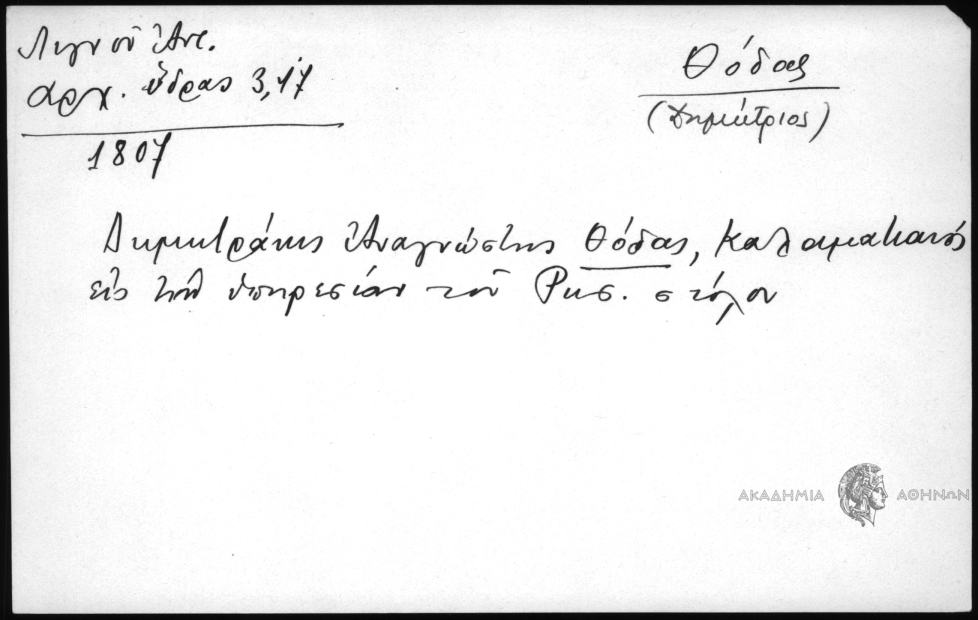 Λιγνοῦ Ἀντ.
ἀρχ. Ὕδρας 3,17
1807
Θόδας
(Δημήτριος)
Δημητράκης Ἀναγνώστης Θόδας, Καλαματιανός
εἰς τὴν ὑπηρεσίαν τοῦ Ρωσ. στόλου
ΑΚΑΔΗΜΙΑ ΑΘΗΝΩΝ